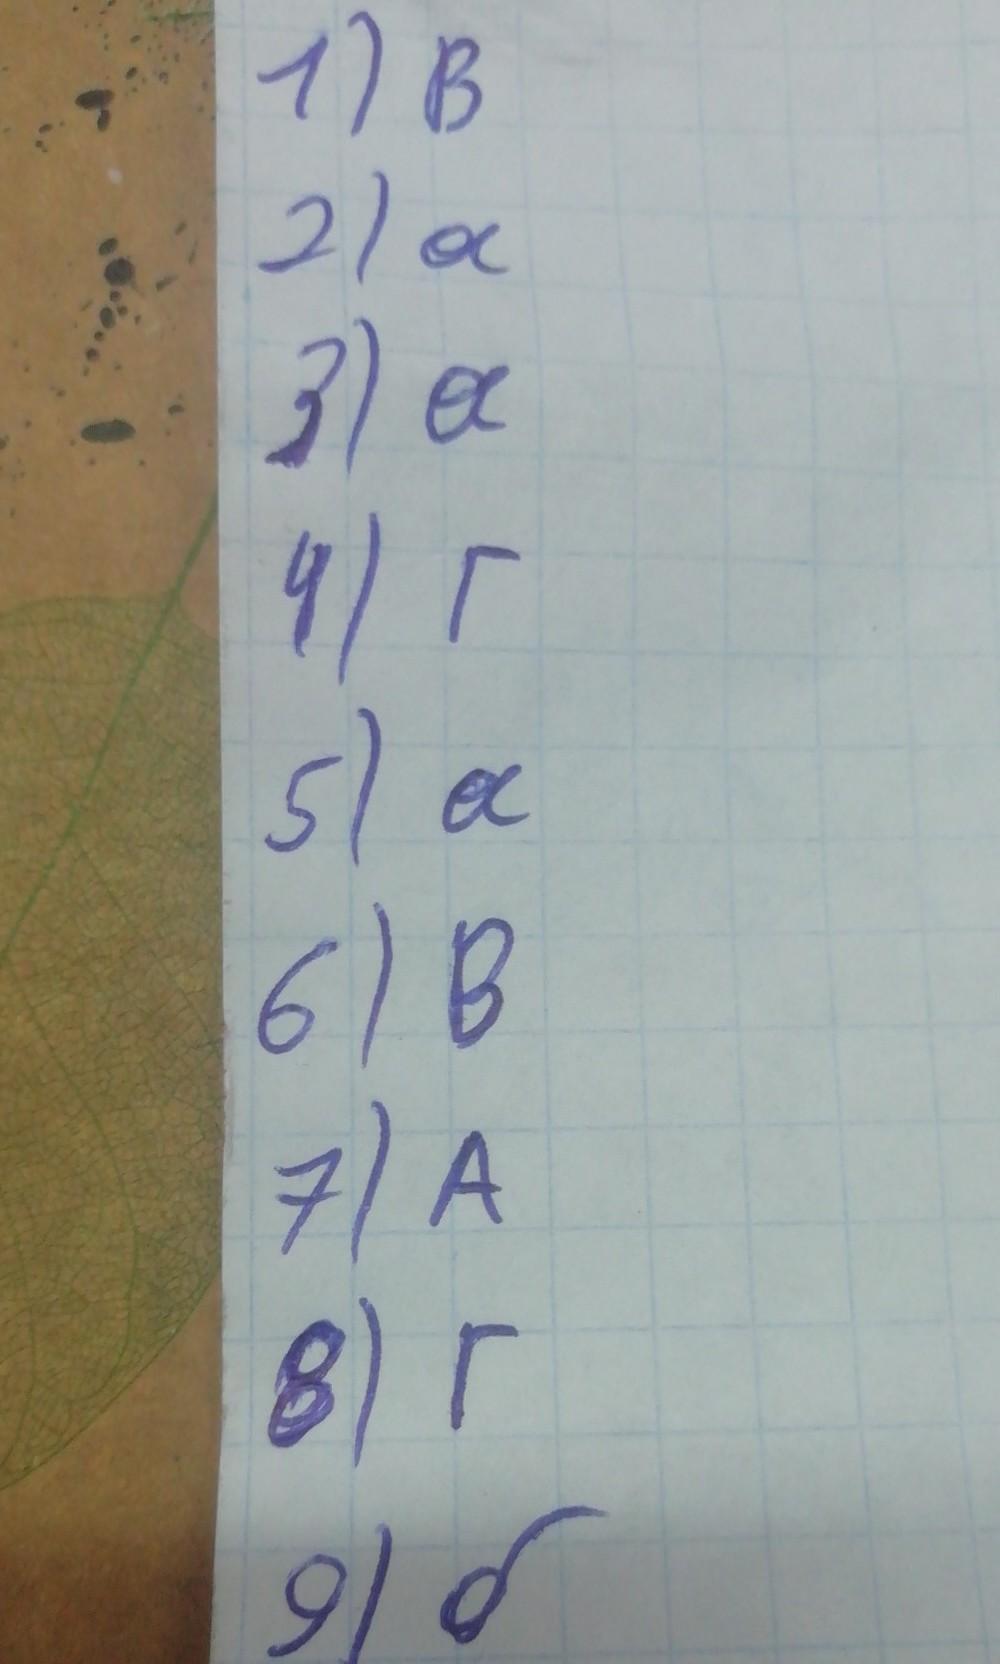 1) В
2) а
3) а
4) Г
5) а
6) В
7) А
8) Г
9) б